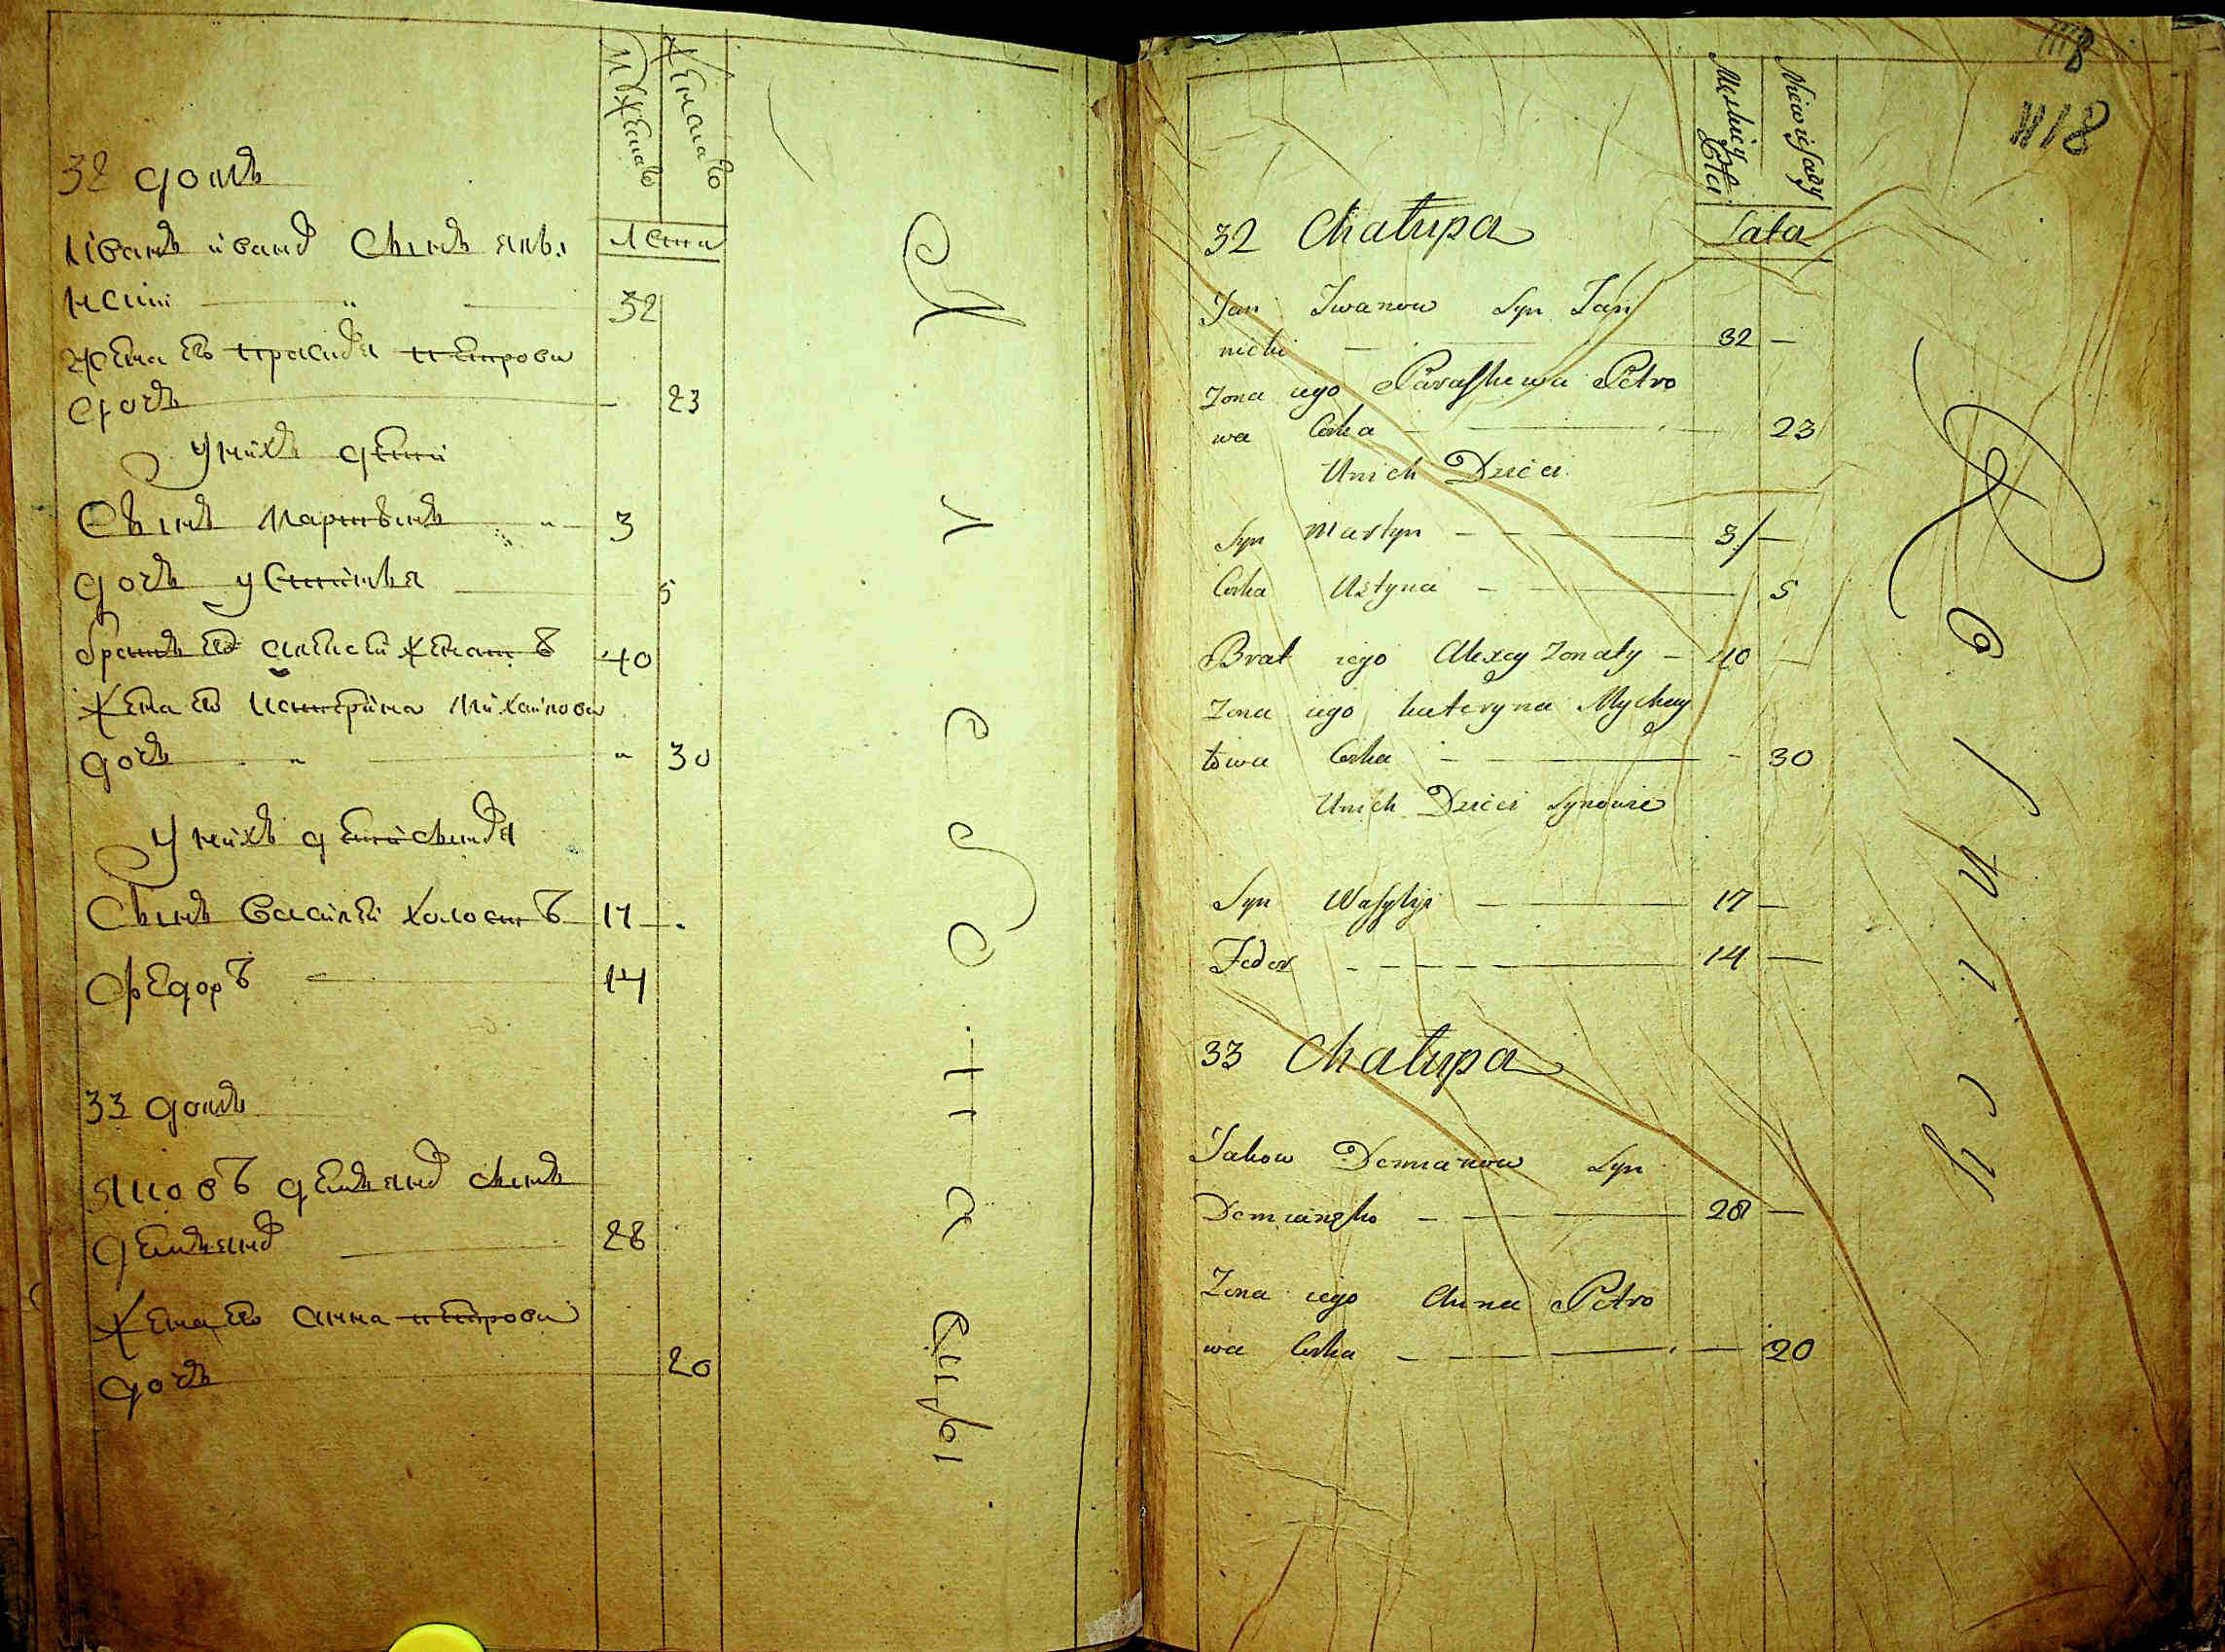 Мужеска
Женска
Лета
32 домъ
Иванъ Ивано сынъ яны
нскии 32
жена его праскевія петрова
дочь 23
У нихъ дети
Сынъ Мартынъ 3
дочь Устинья 5
братъ его алексей женатъ 40
Жена его катерина михаилова
дочь 30
У нихъ дети сыновя
Сынъ василей холостъ 17
Федоръ 14
33 домъ
яковъ демьяно сынъ
демьяно 28
Жена его анна петрова
дочь 20
118
Męskiey
Płci
Niewiasty
Lata
32 Chałupa
Jan Iwanow Syn Jani
nicki 32
Zona iego Paraskewa Petro
wa Corka 23
Unich Dzieci
Syn Martyn 3
Corka Ustyna 5
Brat iego Alexey Zonaty 40
Zona iego kateryna Mychay
łowa Corka 30
Unich Dzieci Synowie
Syn Wasylyi 17
Fedor 14
33 Chałupa
Jakow Demianow Syn
Demianko 28
Zona iego Anna Petro
wa Corka 20